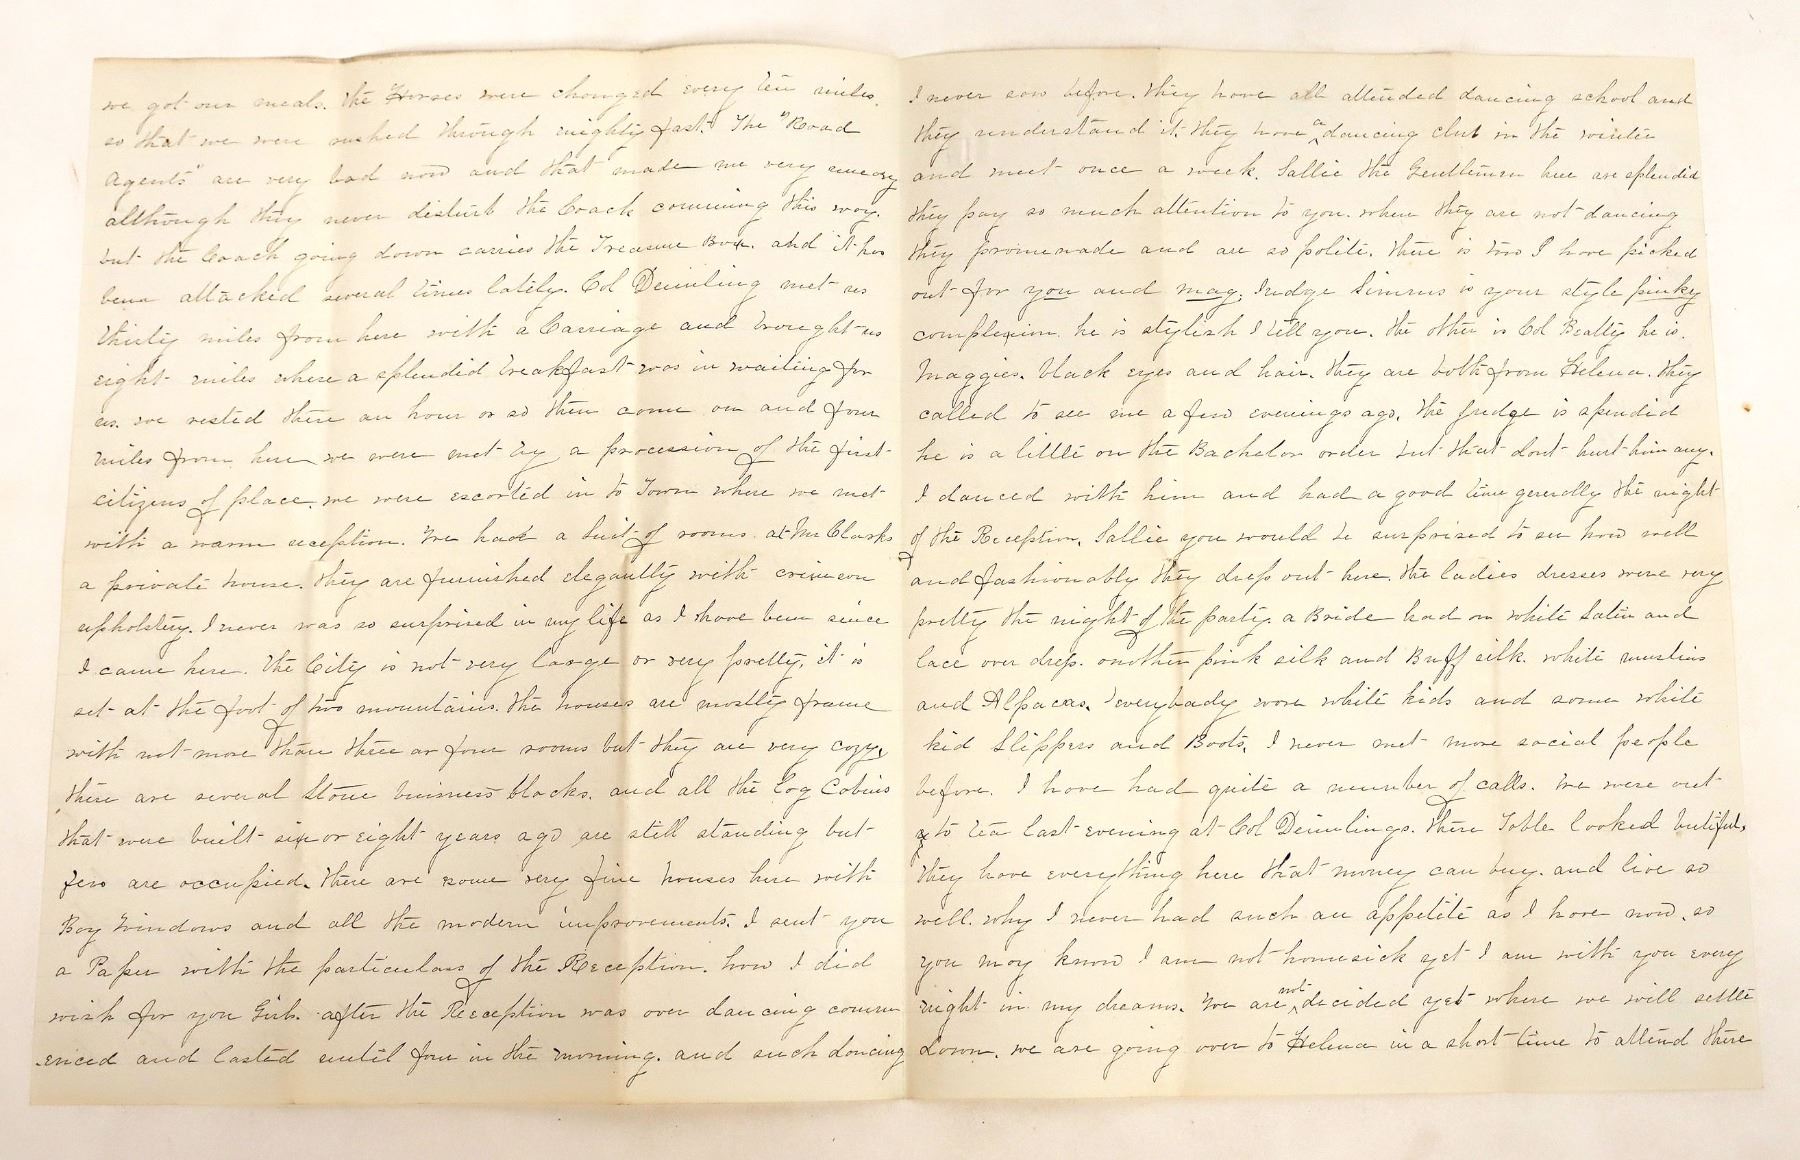 we got our meals. the Horses were changed every ten miles,
so that we were rushed through mighty fast. The "Road
Agents" are very bad now and that made me very uneasy
although they never disturb the Coach comming this way.
but the Coach going down carries the Treasure Box. and it has
been attacked several times lately. Col Deimling met us
thirty miles from here with a Carriage and brought us
eight miles where a splendid breakfast was in waiting for
us. we rested there an hour or so then come on and four
miles from here we were met by a procession of the first
citizens of place. we were escorted in to Town where we met
with a warm reception. We have a Suit of rooms at Mr Clarks
a private house. they are furnished elegantly with crimson
upholstry. I never was so surprised in my life as I have been since
I came here. The City is not very large or very pretty, it is
set at the foot of two mountains. the houses are mostly frame
with not more than three or four rooms but they are very cozy,
there are several Stone business blocks. and all the Log Cabins
that were built six or eight years ago are still standing but
few are occupied. there are some very fine houses here with
Bay Windows and all the modern improvements. I sent you
a Paper with the particulars of the Reception. how I did
wish for you Girls. after the Reception was over dancing comm
enced and lasted until four in the morning. and such dancing
I never saw before. they have all attended dancing school and
they understand it. they have a dancing club in the winter
and meet once a week. Sallie the Gentlemen here are splendid
they pay so much attention to you. when they are not dancing
they promenade and are so polite. there is two I have picked
out for you and mag; Judge Simms is your style pinky
complexion. he is stylish I tell you. the other is Col Beatty he is
Maggies. black eyes and hair. they are both from Helena. they
called to see me a few evenings ago. the Judge is spendid
he is a little on the Bachelor order but that dont hurt him any.
I danced with him and had a good time generally the night
of the Reception. Sallie you would be surprised to see how well
and fashionably they dress out here. the ladies dresses were very
pretty the night of the party. a Bride had on white Satin and
lace over dress. another pink silk and Buff silk. white muslins
and Alpacas. everybody wore white kids and some white
kid Slippers and Boots. I never met more social people
before. I have had quite a number of calls. we were out
to tea last evening at Col Deimlings. there Table looked butiful,
they have everything here that money can buy. and live so
well. why I never had such an appetite as I have now. so
you may know I am not homesick yet I am with you every
night in my dreams. We are not decided yet where we will settle
down. we are going over to Helena in a short time to attend there